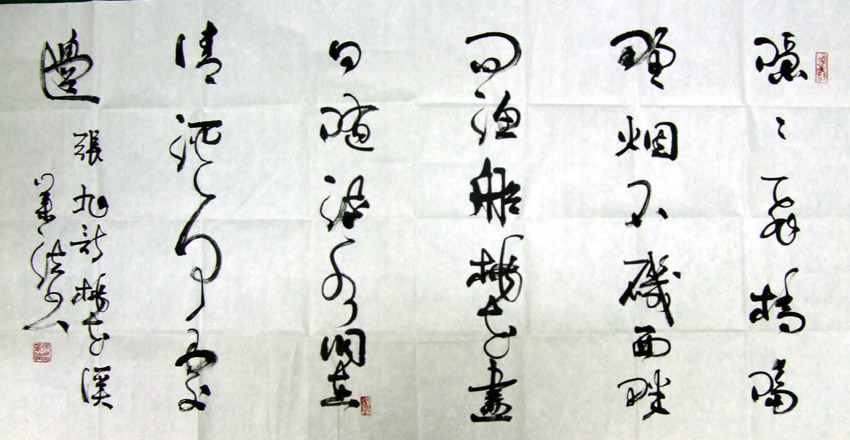 隱〻飛橋隔
野烟石磯西畔
问渔船桃花盡
日隨流水洞在
清溪何處
邊
張旭詩桃花溪